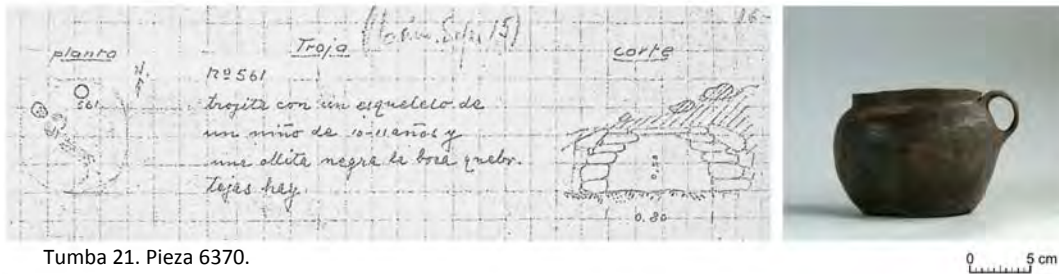 16-
planta
Troja
corte
N.
561
Nº 561
trojita con un esqueleto de
un niño de 10-11 años y
una ollita negra la boca quebr.
tejas hay.
0,50
0.80
Tumba 21. Pieza 6370.
0 5 cm